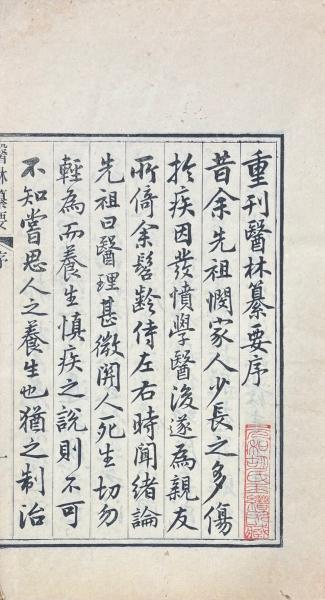 重刊醫林纂要序
昔余先祖憫家人少長之多傷
於疾因發憤學醫後遂為親友
所倚余髫齡侍左右時聞緒論
先祖曰醫理甚微關人死生切勿
輕為而養生慎疾之說則不可
不知嘗思人之養生也猶之制治
醫林纂要
序
一